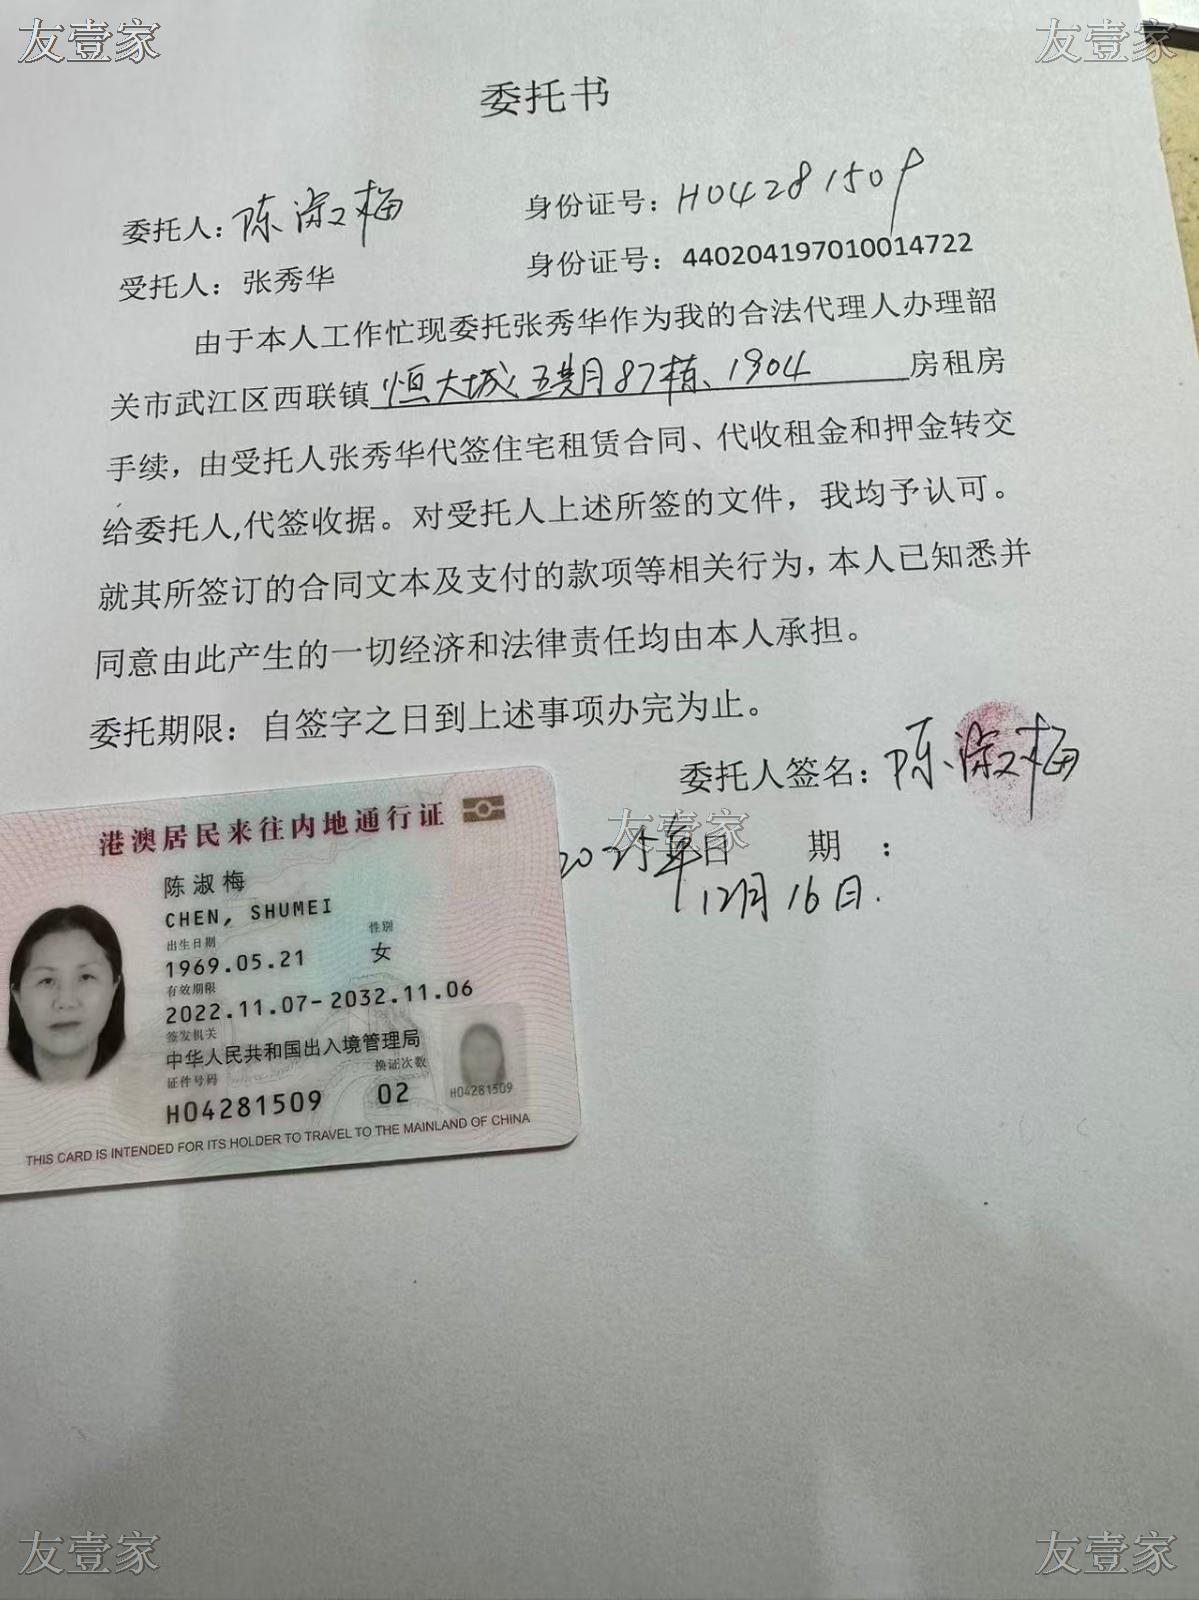 友壹家
友壹家
委托书
委托人：陈淑梅 身份证号：H04281509
受托人：张秀华 身份证号：440204197010014722
由于本人工作忙现委托张秀华作为我的合法代理人办理韶
关市武江区西联镇 恒大城 87栋、1904 房租房
手续，由受托人张秀华代签住宅租赁合同、代收租金和押金转交
给委托人,代签收据。对受托人上述所签的文件，我均予认可。
就其所签订的合同文本及支付的款项等相关行为，本人已知悉并
同意由此产生的一切经济和法律责任均由本人承担。
委托期限：自签字之日到上述事项办完为止。
委托人签名：陈淑梅
友壹家
日 期 ：
12月16日.
港澳居民来往内地通行证
陈淑梅
CHEN, SHUMEI
出生日期 性别
1969.05.21 女
有效期限
2022.11.07-2032.11.06
签发机关
中华人民共和国出入境管理局
证件号码 换证次数
H04281509 02 H04281509
THIS CARD IS INTENDED FOR ITS HOLDER TO TRAVEL TO THE MAINLAND OF CHINA
友壹家
友壹家